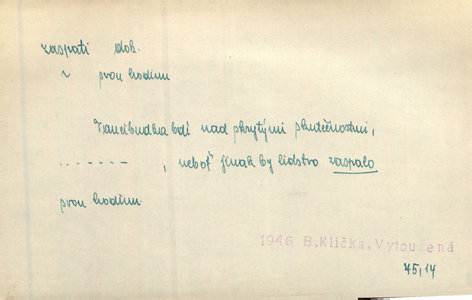 zaspati dok.
v prvou hodinu
Tancibudka bdí nad skrytými skutečnostmi,
. . . . . . . , neboť jinak by lidstvo zaspalo
prvou hodinu.
1946 B. Klička, Vytoužená
75, 14